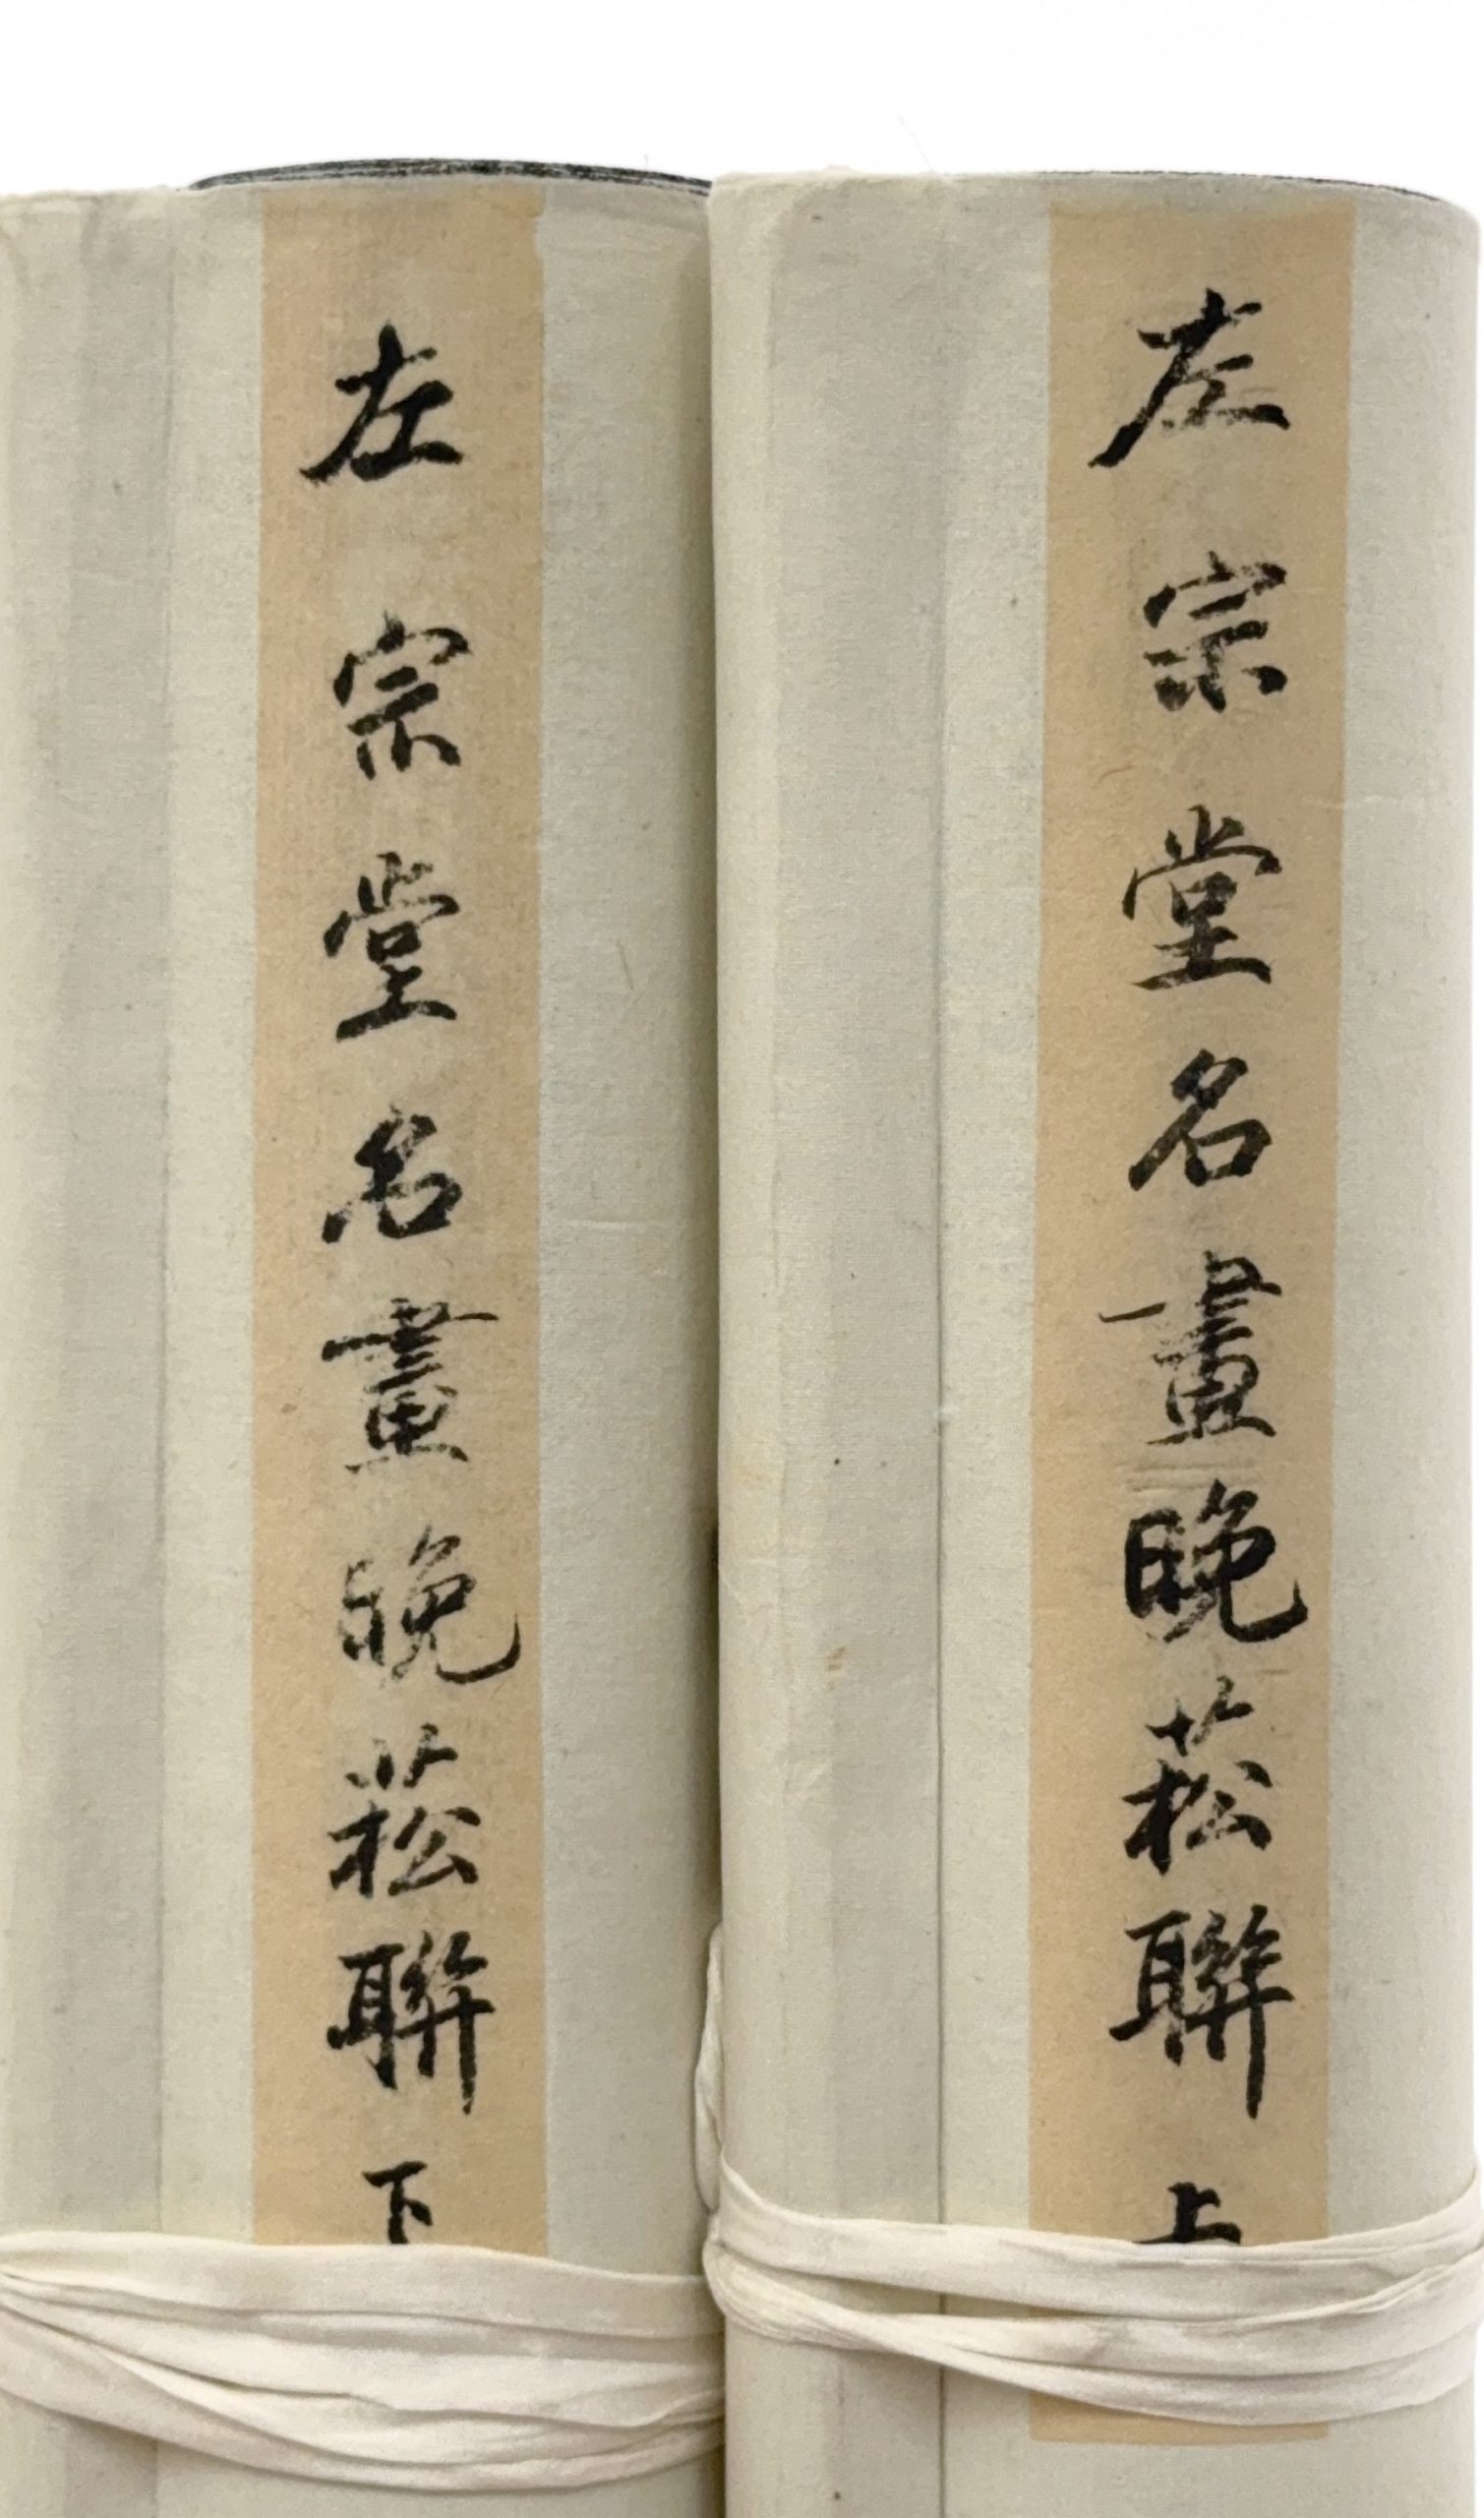 左宗堂名畫晚菘聯上
左宗堂名畫晚菘聯下